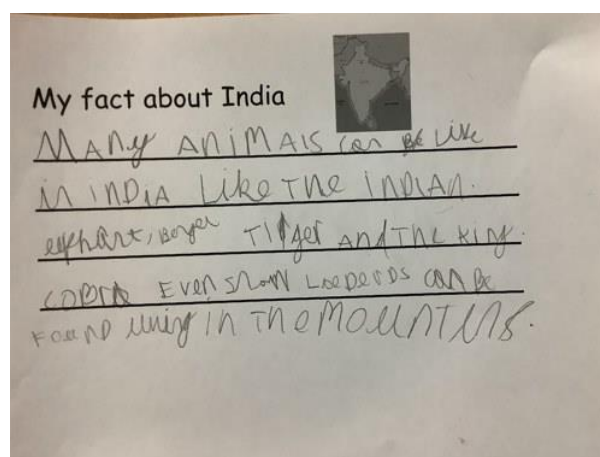 My fact about India
MANy ANiMAlS can be Live
in iNDiA Like THe iNDiAN.
elphant, Bengel Tiger ANd THe King.
COBRA EveN SNOW LoePerDS can Be
FouND living IN THe MOUNTINS.